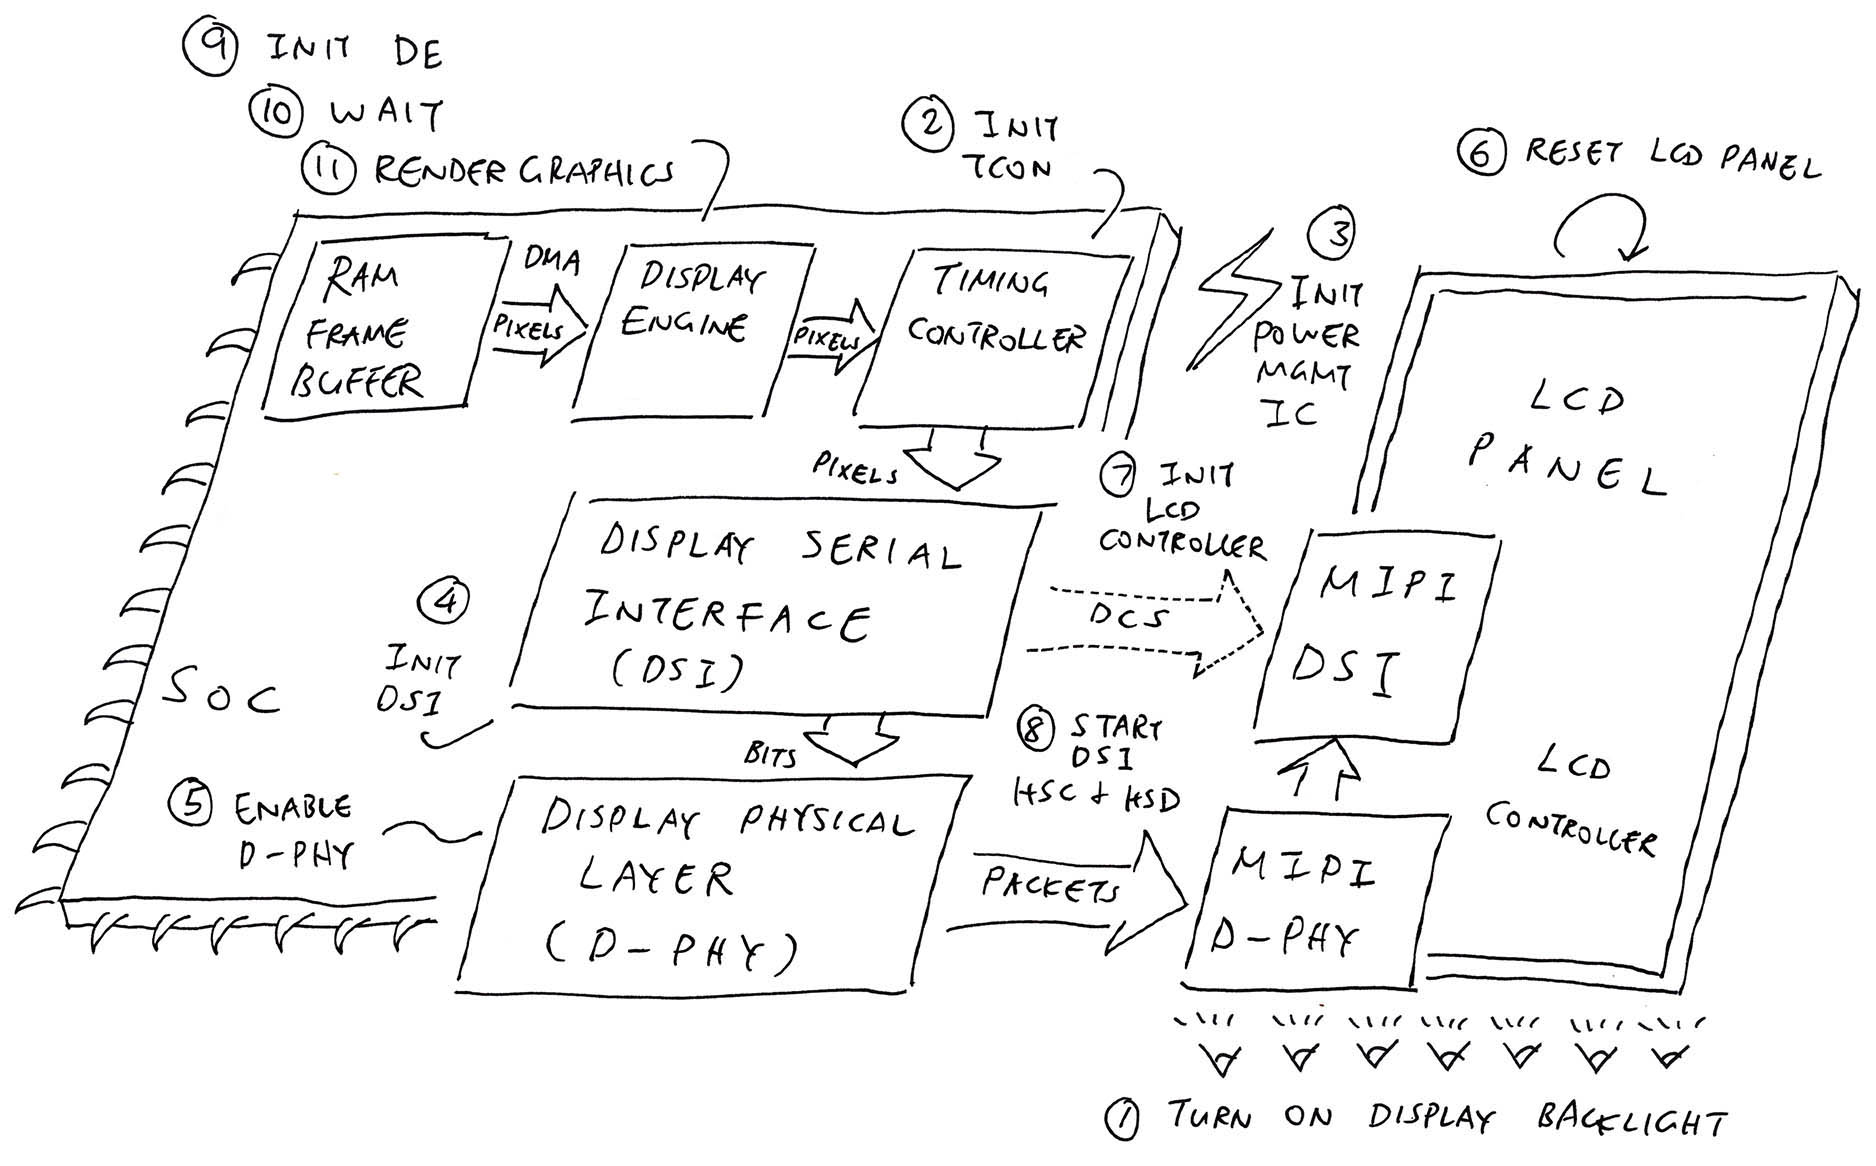 9 INIT DE
10 WAIT
11 RENDER GRAPHICS
2 INIT
TCON
6 RESET LCD PANEL
3
INIT
POWER
MGMT
IC
RAM
FRAME
BUFFER
DMA
PIXELS
DISPLAY
ENGINE
PIXELS
TIMING
CONTROLLER
PIXELS
LCD
PANEL
7 INIT
LCD
CONTROLLER
DISPLAY SERIAL
INTERFACE
(DSI)
4
INIT
DSI
DCS
MIPI
DSI
SOC
BITS
8 START
DSI
HSC + HSD
LCD
CONTROLLER
5 ENABLE
D-PHY
DISPLAY PHYSICAL
LAYER
(D-PHY)
PACKETS
MIPI
D-PHY
1 TURN ON DISPLAY BACKLIGHT